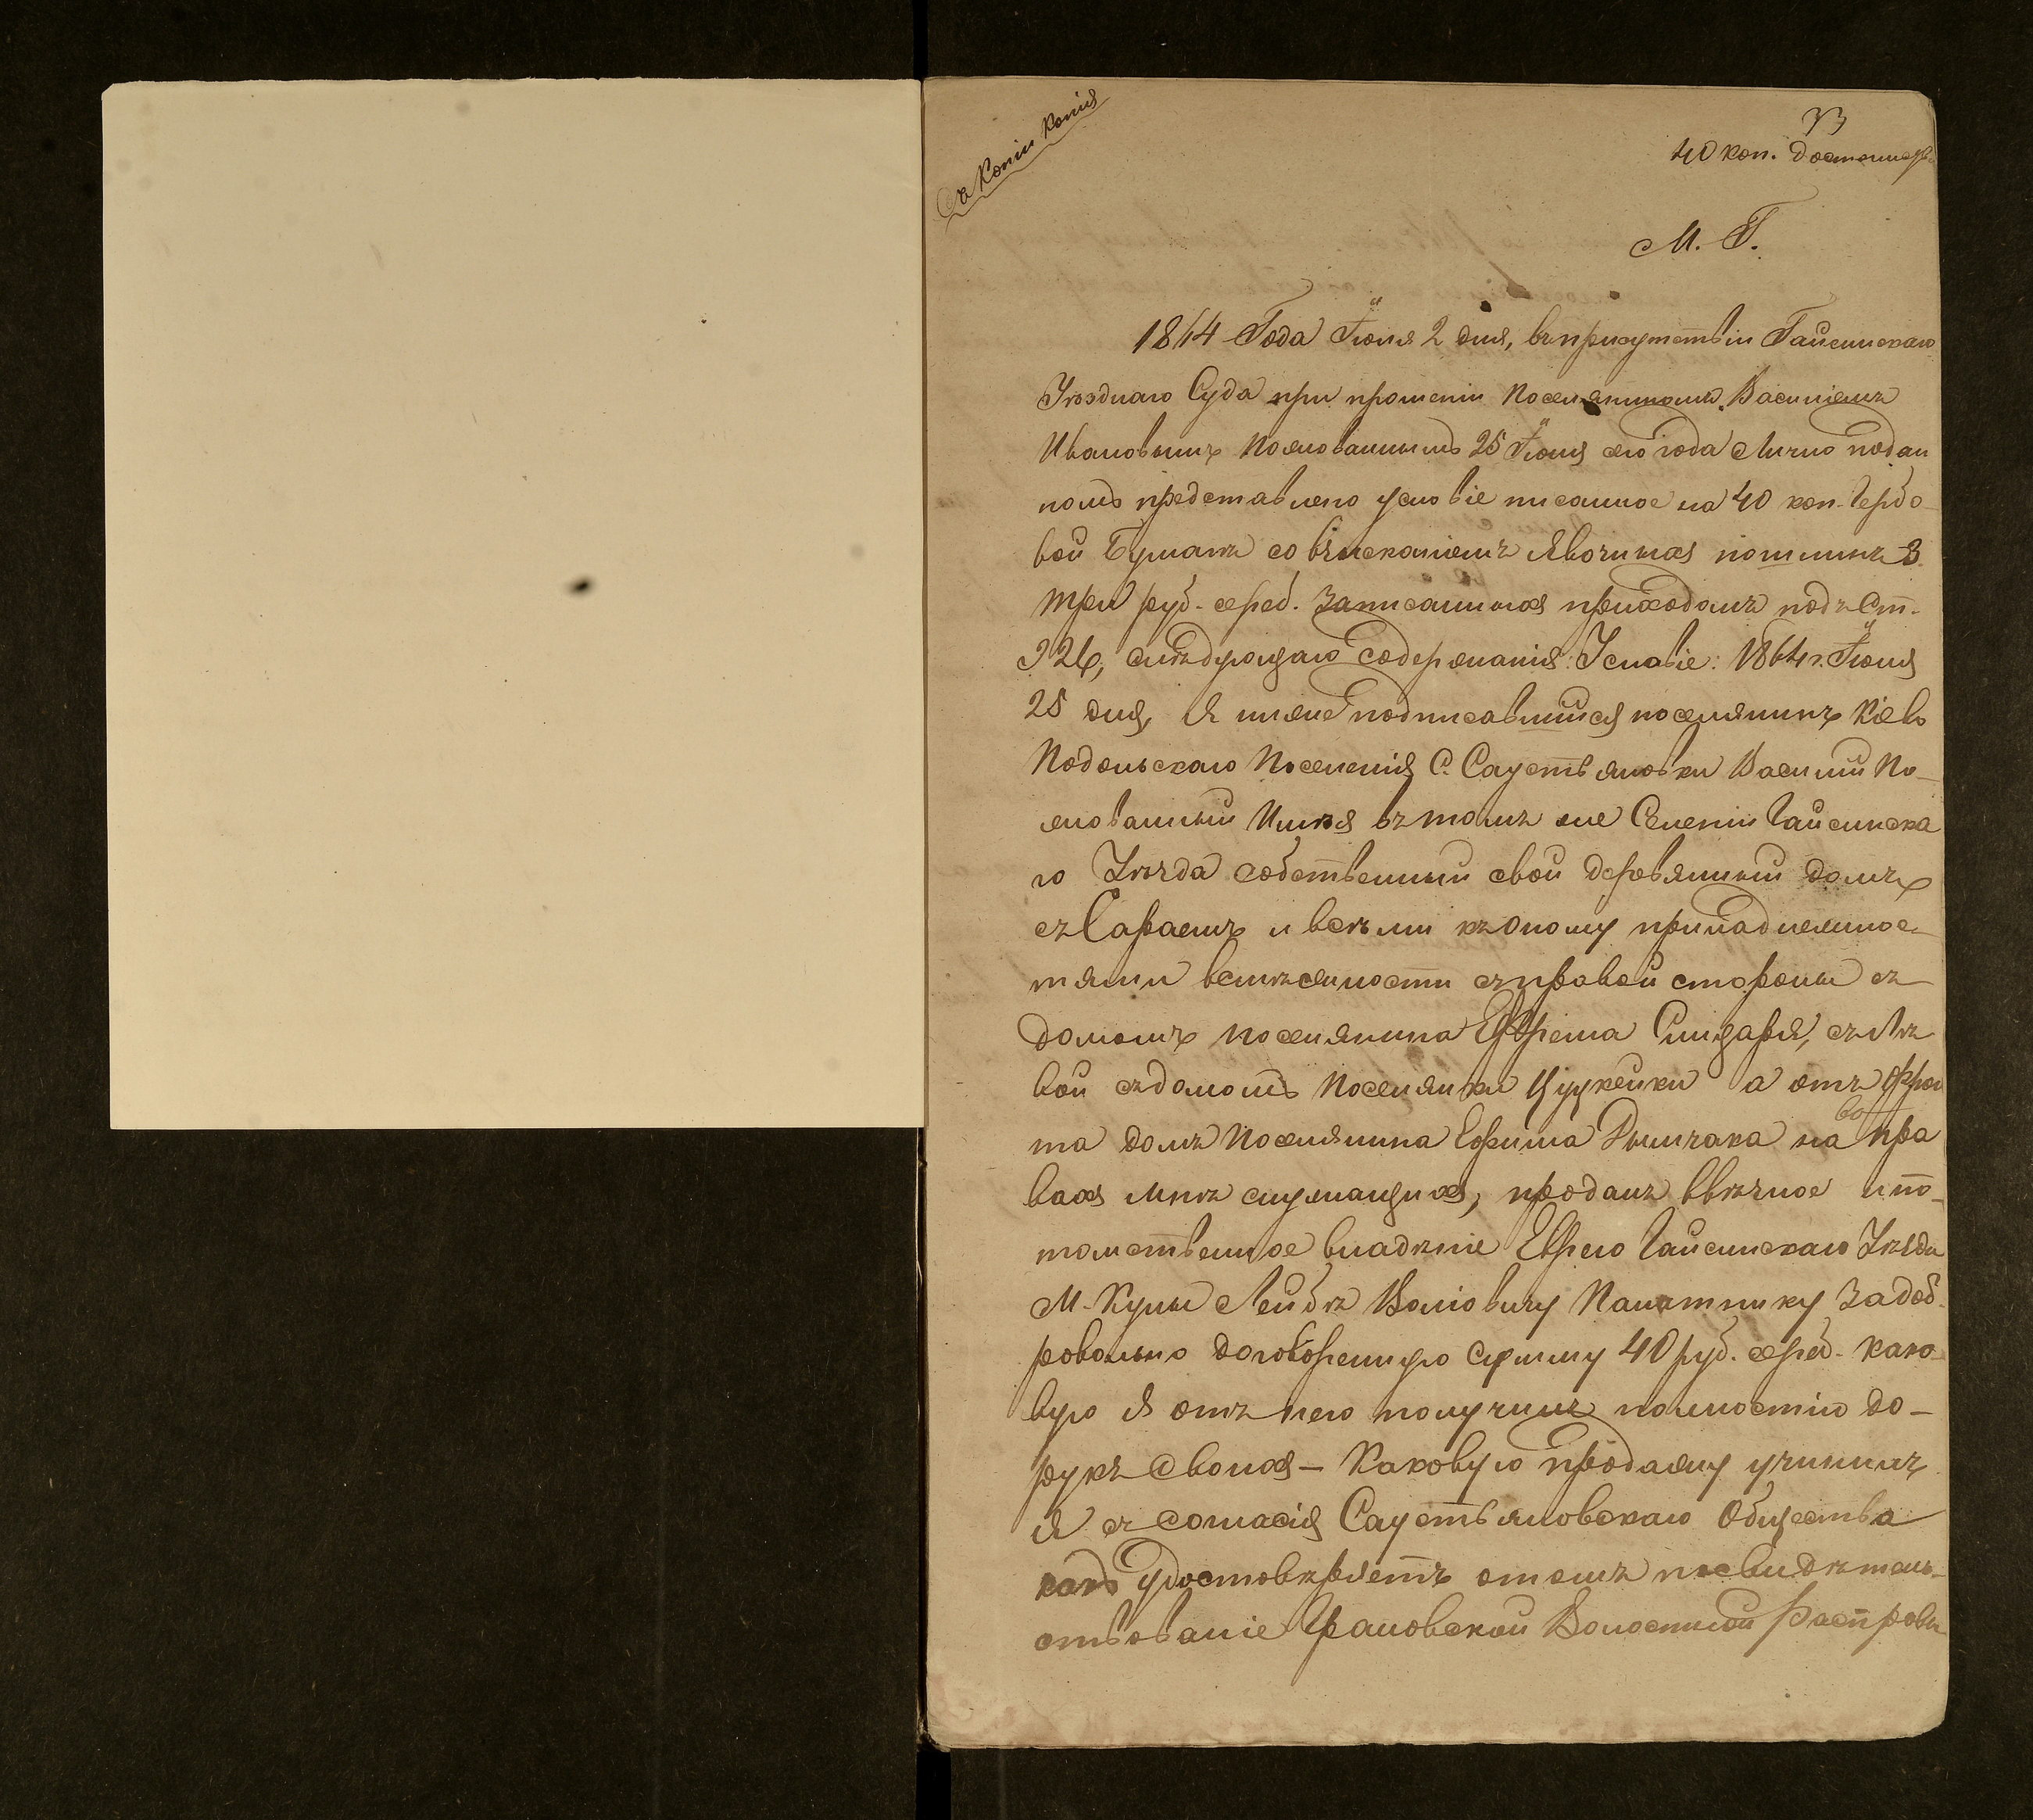 Съ копіи копія
33
40 коп. достоинства
М. Г.
1864 Года Іюля 2 дня, въ присутствіи Гайсинскаго
Уѣзднаго Суда при прошеніи Поселяниномъ Василіемъ
Ивановымъ Пожлованнымъ 25 Іюня сего года Лично подан
номъ представлено условіе писанное на 40 коп. Гербо-
вой Бумагѣ со взысканіемъ Явочныхъ пошлинъ 3
три руб. сереб. Записанныхъ приходомъ подъ Ст.
326, слѣдующаго содержанія: Условіе: 1864 г. Іюня
25 дня, Я ниже подписавшійся поселянинъ Кіево
Подольскаго Поселенія С. Саустьяновки Василій По-
жлованный Имѣя въ томъ же Селеніи Гайсинска
го Уѣзда собственный свой деревянный домъ
съ Сараемъ и всѣми къ оному принадлежнос-
тями всмѣжности съ правой стороны съ
домомъ поселянина Ефрема Слюзаря, съ Лѣ
вой съ домомъ Поселянки Цуркейки а отъ фрон
та домъ Поселянина Ефима Дымчака на
во
пра
вахъ мнѣ служащихъ, продалъ ввѣчное и по-
томственное владѣніе Еврею Гайсинскаго Уѣзда
М. Куны Лейбѣ Волковичу Палатнику За доб-
ровольно договоренную сумму 40 руб. сереб. како-
вую я отъ него получилъ полностію до-
рукъ Своихъ – Каковую продажу учинилъ
Я съ согласія Саустьяновскаго Общества
какъ удостовѣряетъ отомъ посвидѣтель-
ствованіе Грановской Волостной Распровы